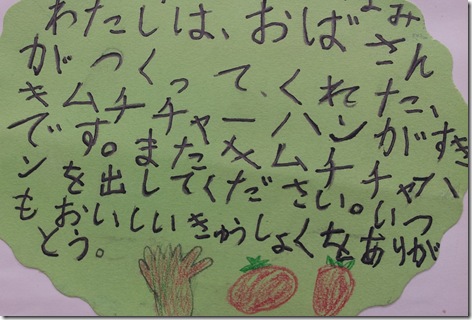 わたしは、おばさん
がつくってくれた、
キムチチャーハンがすき
です。またキムチチャーハ
ンを出してください。いつ
もおいしいきゅうしょくをありが
とう。